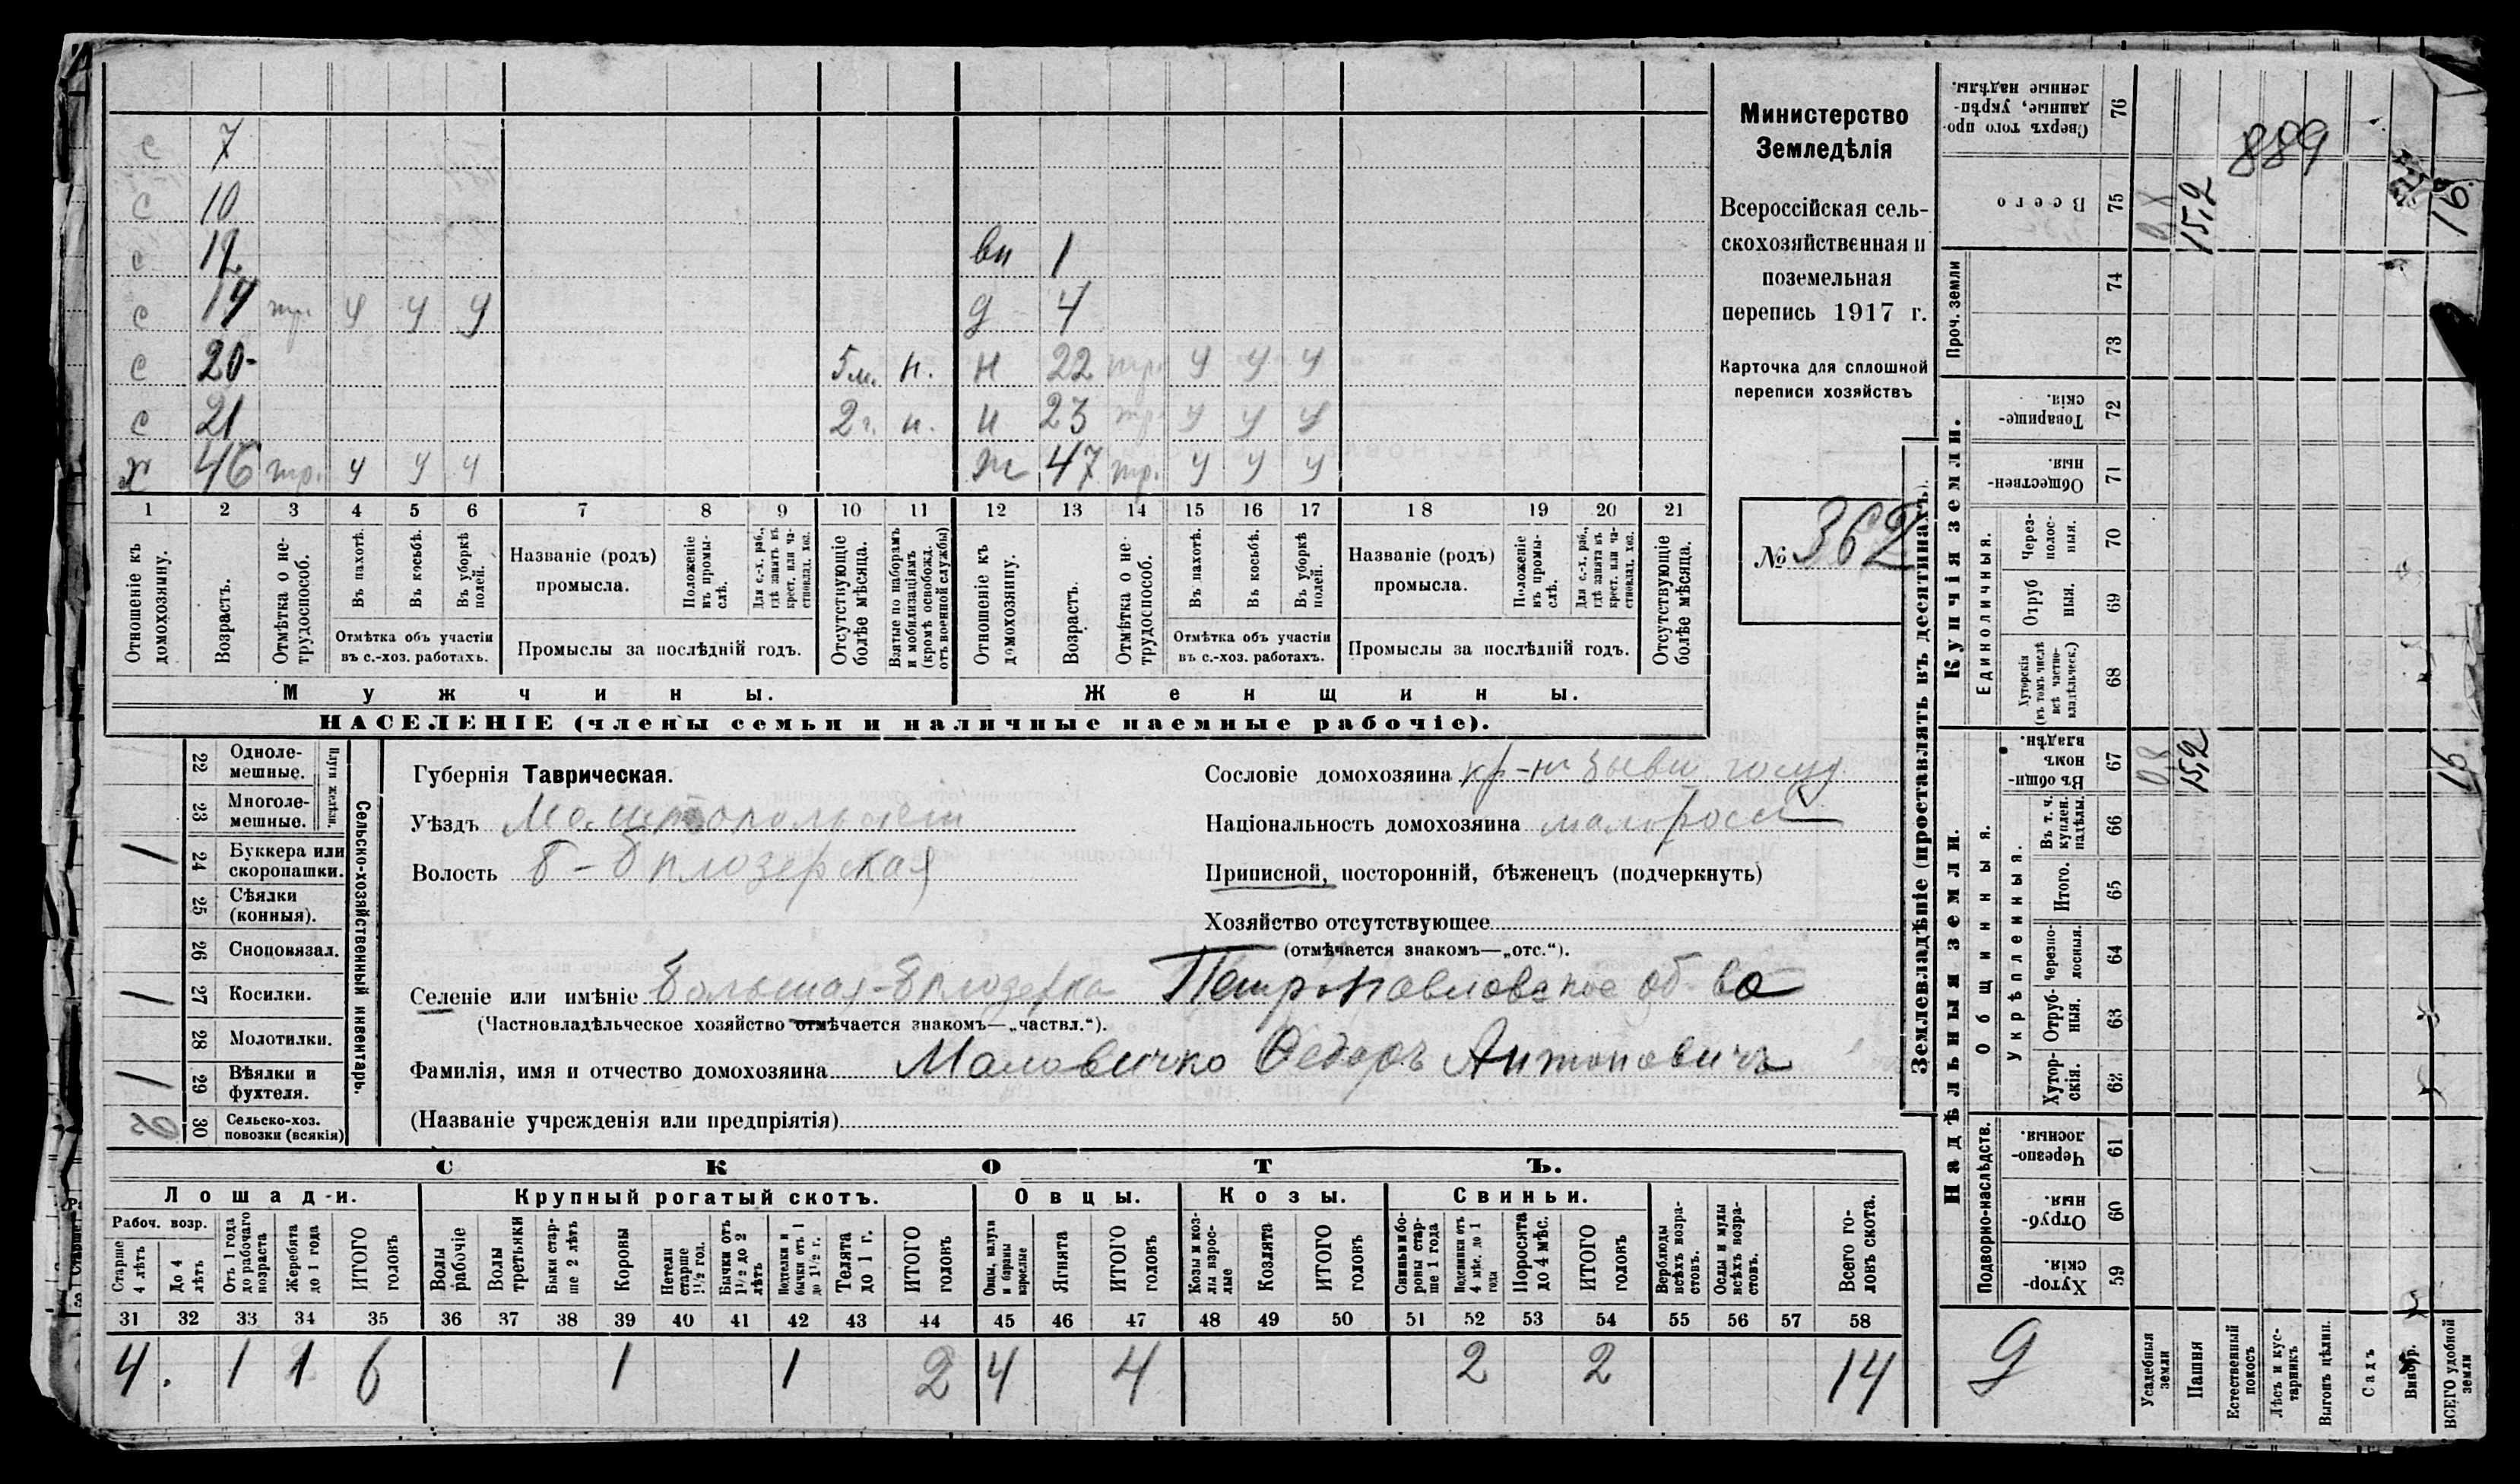 с 7
с 10
с 12 вн 1
с 14 тр. у у у д 4
с 20 5 м. н. н 22 тр. у у у
с 21 2 г. н. н 23 тр. у у у
х 46 тр. у у у ж 47 тр. у у у
1 2 3 4 5 6 7 8 9 10 11 12 13 14 15 16 17 18 19 20 21
Отношеніе къ домохозяину.
Возрастъ.
Отмѣтка о не-трудоспособ.
Въ пахотѣ.
Въ косьбѣ.
Въ уборкѣ полей.
Отмѣтка объ участіи
въ с.-хоз. работахъ.
Названіе (родъ)
промысла.
Положеніе въ промы-слѣ.
Для с.-х. раб., гдѣ занятъ въ крест. или ча-стновлад. хоз.
Промыслы за послѣдній годъ.
Отсутствующіе болѣе мѣсяца.
Взятые по наборамъ и мобилизаціямъ (кромѣ освобожд. отъ военной службы)
Отношеніе къ домохозяину.
Возрастъ.
Отмѣтка о не-трудоспособ.
Въ пахотѣ.
Въ косьбѣ.
Въ уборкѣ полей.
Отмѣтка объ участіи
въ с.-хоз. работахъ.
Названіе (родъ)
промысла.
Положеніе въ промы-слѣ.
Для с.-х. раб., гдѣ занята въ крест. или ча-стновлад. хоз.
Промыслы за послѣдній годъ.
Отсутствующіе болѣе мѣсяца.
Мужчины. Женщины.
НАСЕЛЕНІЕ (члены семьи и наличные наемные рабочіе).
Министерство
Земледѣлія
Всероссійская сель-
скохозяйственная и
поземельная
перепись 1917 г.
Карточка для сплошной
переписи хозяйствъ
№ 362
22 Одноле-мешные.
23 Многоле-мешные.
Плуги желѣзн.
/ 24 Буккера или скоропашки.
25 Сѣялки (конныя).
26 Сноповязал.
/ 27 Косилки.
28 Молотилки.
/ 29 Вѣялки и фухтеля.
30 Сельско-хоз. повозки (всякія)
Сельско-хозяйственный инвентарь.
Губернія Таврическая.
Уѣздъ Мелитопольскій
Волость Б-Бѣлозерская
Сословіе домохозяина кр-нъ бывш. госуд.
Національность домохозяина малоросс
Приписной, посторонній, бѣженецъ (подчеркнуть)
Хозяйство отсутствующее
(отмѣчается знакомъ—„отс.“).
Селеніе или имѣніе Большая-Бѣлозерка Петропавловское об-во
(Частновладѣльческое хозяйство отмѣчается знакомъ—„частвл.“).
Фамилія, имя и отчество домохозяина Маловичко Федоръ Антоновичъ
(Названіе учрежденія или предпріятія)
СКОТЪ.
Лошади. Крупный рогатый скотъ. Овцы. Козы. Свиньи.
Рабоч. возр.
Старше 4 лѣтъ
До 4 лѣтъ
Отъ 1 года до рабочаго возраста
Жеребята до 1 года
ИТОГО головъ
Волы рабочіе
Волы третьяки
Быки стар-ше 2 лѣтъ
Коровы
Нетели старше 1½ год.
Бычки отъ 1½ до 2 лѣтъ
Подтелки и бычки отъ 1 до 1½ г.
Телята до 1 г.
ИТОГО головъ
Овцы, валухи и бараны взрослые
Ягнята
ИТОГО головъ
Козы и коз-лы взрос-лые
Козлята
ИТОГО головъ
Свиньи и бо-ровы стар-ше 1 года
Подсвинки отъ 4 мѣс. до 1 года
Поросята до 4 мѣс.
ИТОГО головъ
Верблюды всѣхъ возра-стовъ.
Ослы и мулы всѣхъ возра-стовъ.
Всего го-ловъ скота.
31 32 33 34 35 36 37 38 39 40 41 42 43 44 45 46 47 48 49 50 51 52 53 54 55 56 57 58
4 . 1 1 6 1 1 2 4 4 2 2 14
Землевладѣніе (проставлять въ десятинахъ).
Купчія земли.
Надѣльныя земли.
Сверхъ того про-данные, укрѣп-ленные надѣлы. 76
889
Всего 75 15,2 16
Проч. земли 74
73
Товарище-скія. 72
Обществен-ныя. 71
Единоличныя.
Через-полос-ныя. 70
Отруб-ныя. 69
Хуторскія (въ томъ числѣ всѣ частно-владѣльческ.) 68
Общинныя.
Въ общин-номъ владѣн. 67 08 15,2 16
Укрѣпленныя.
Въ т. ч. куплен. надѣлы. 66
Итого. 65
Черезпо-лосныя. 64
Отруб-ныя. 63
Хутор-скія. 62
Подворно-наслѣдств.
Черезпо-лосныя. 61
Отруб-ныя. 60
Хутор-скія. 59
9
Усадебныя земли
Пашня
Естественный покосъ
Лѣсъ и кус-тарникъ
Выгонъ цѣлин.
Садъ
Виногр.
ВСЕГО удобной земли